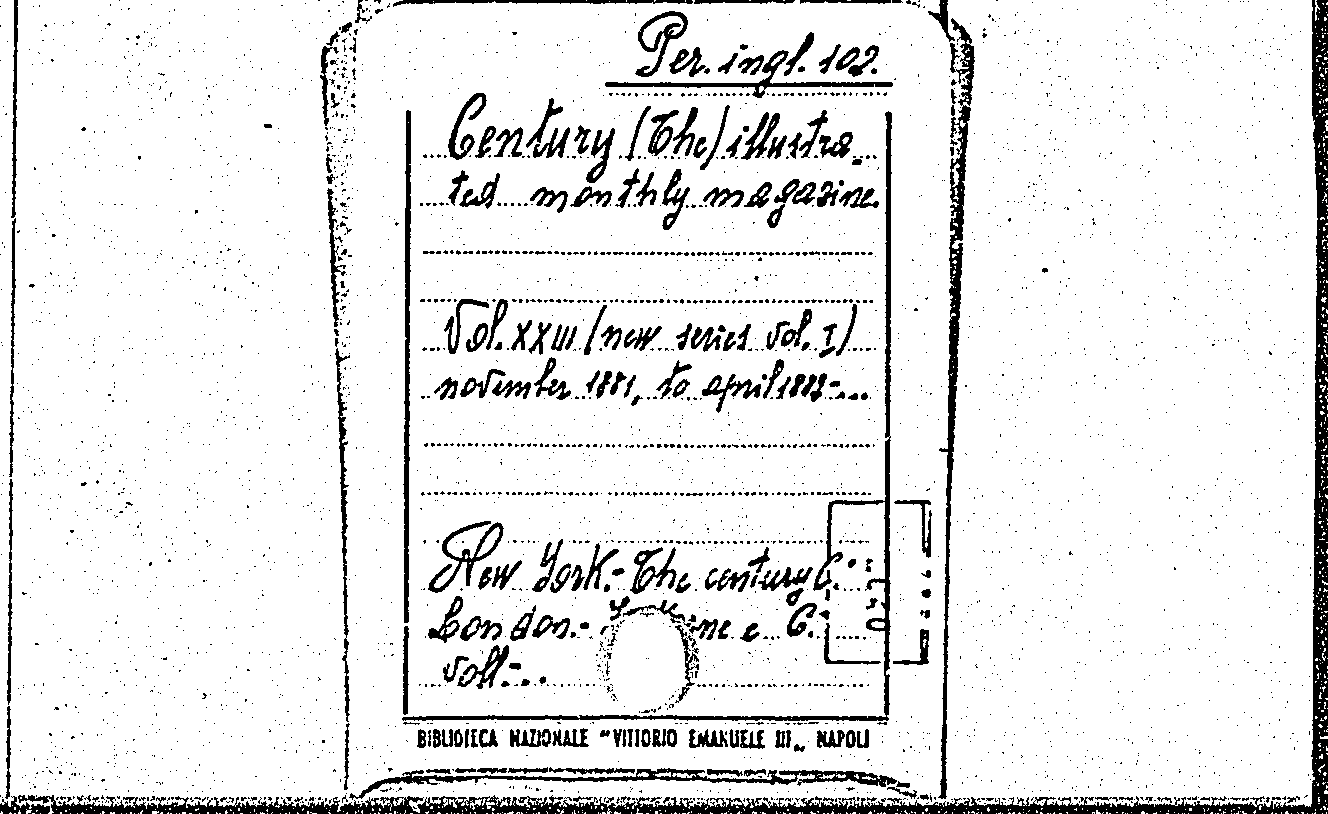 Per. ingl. 102.
Century (The) illustra-
ted monthly magazine.
Vol. XXIII (new series vol. I)
november 1881, to april 1882-...
New York.- The century C.°
London.- e C.°
voll-..
BIBLIOTECA NAZIONALE "VITTORIO EMANUELE III„ NAPOLI